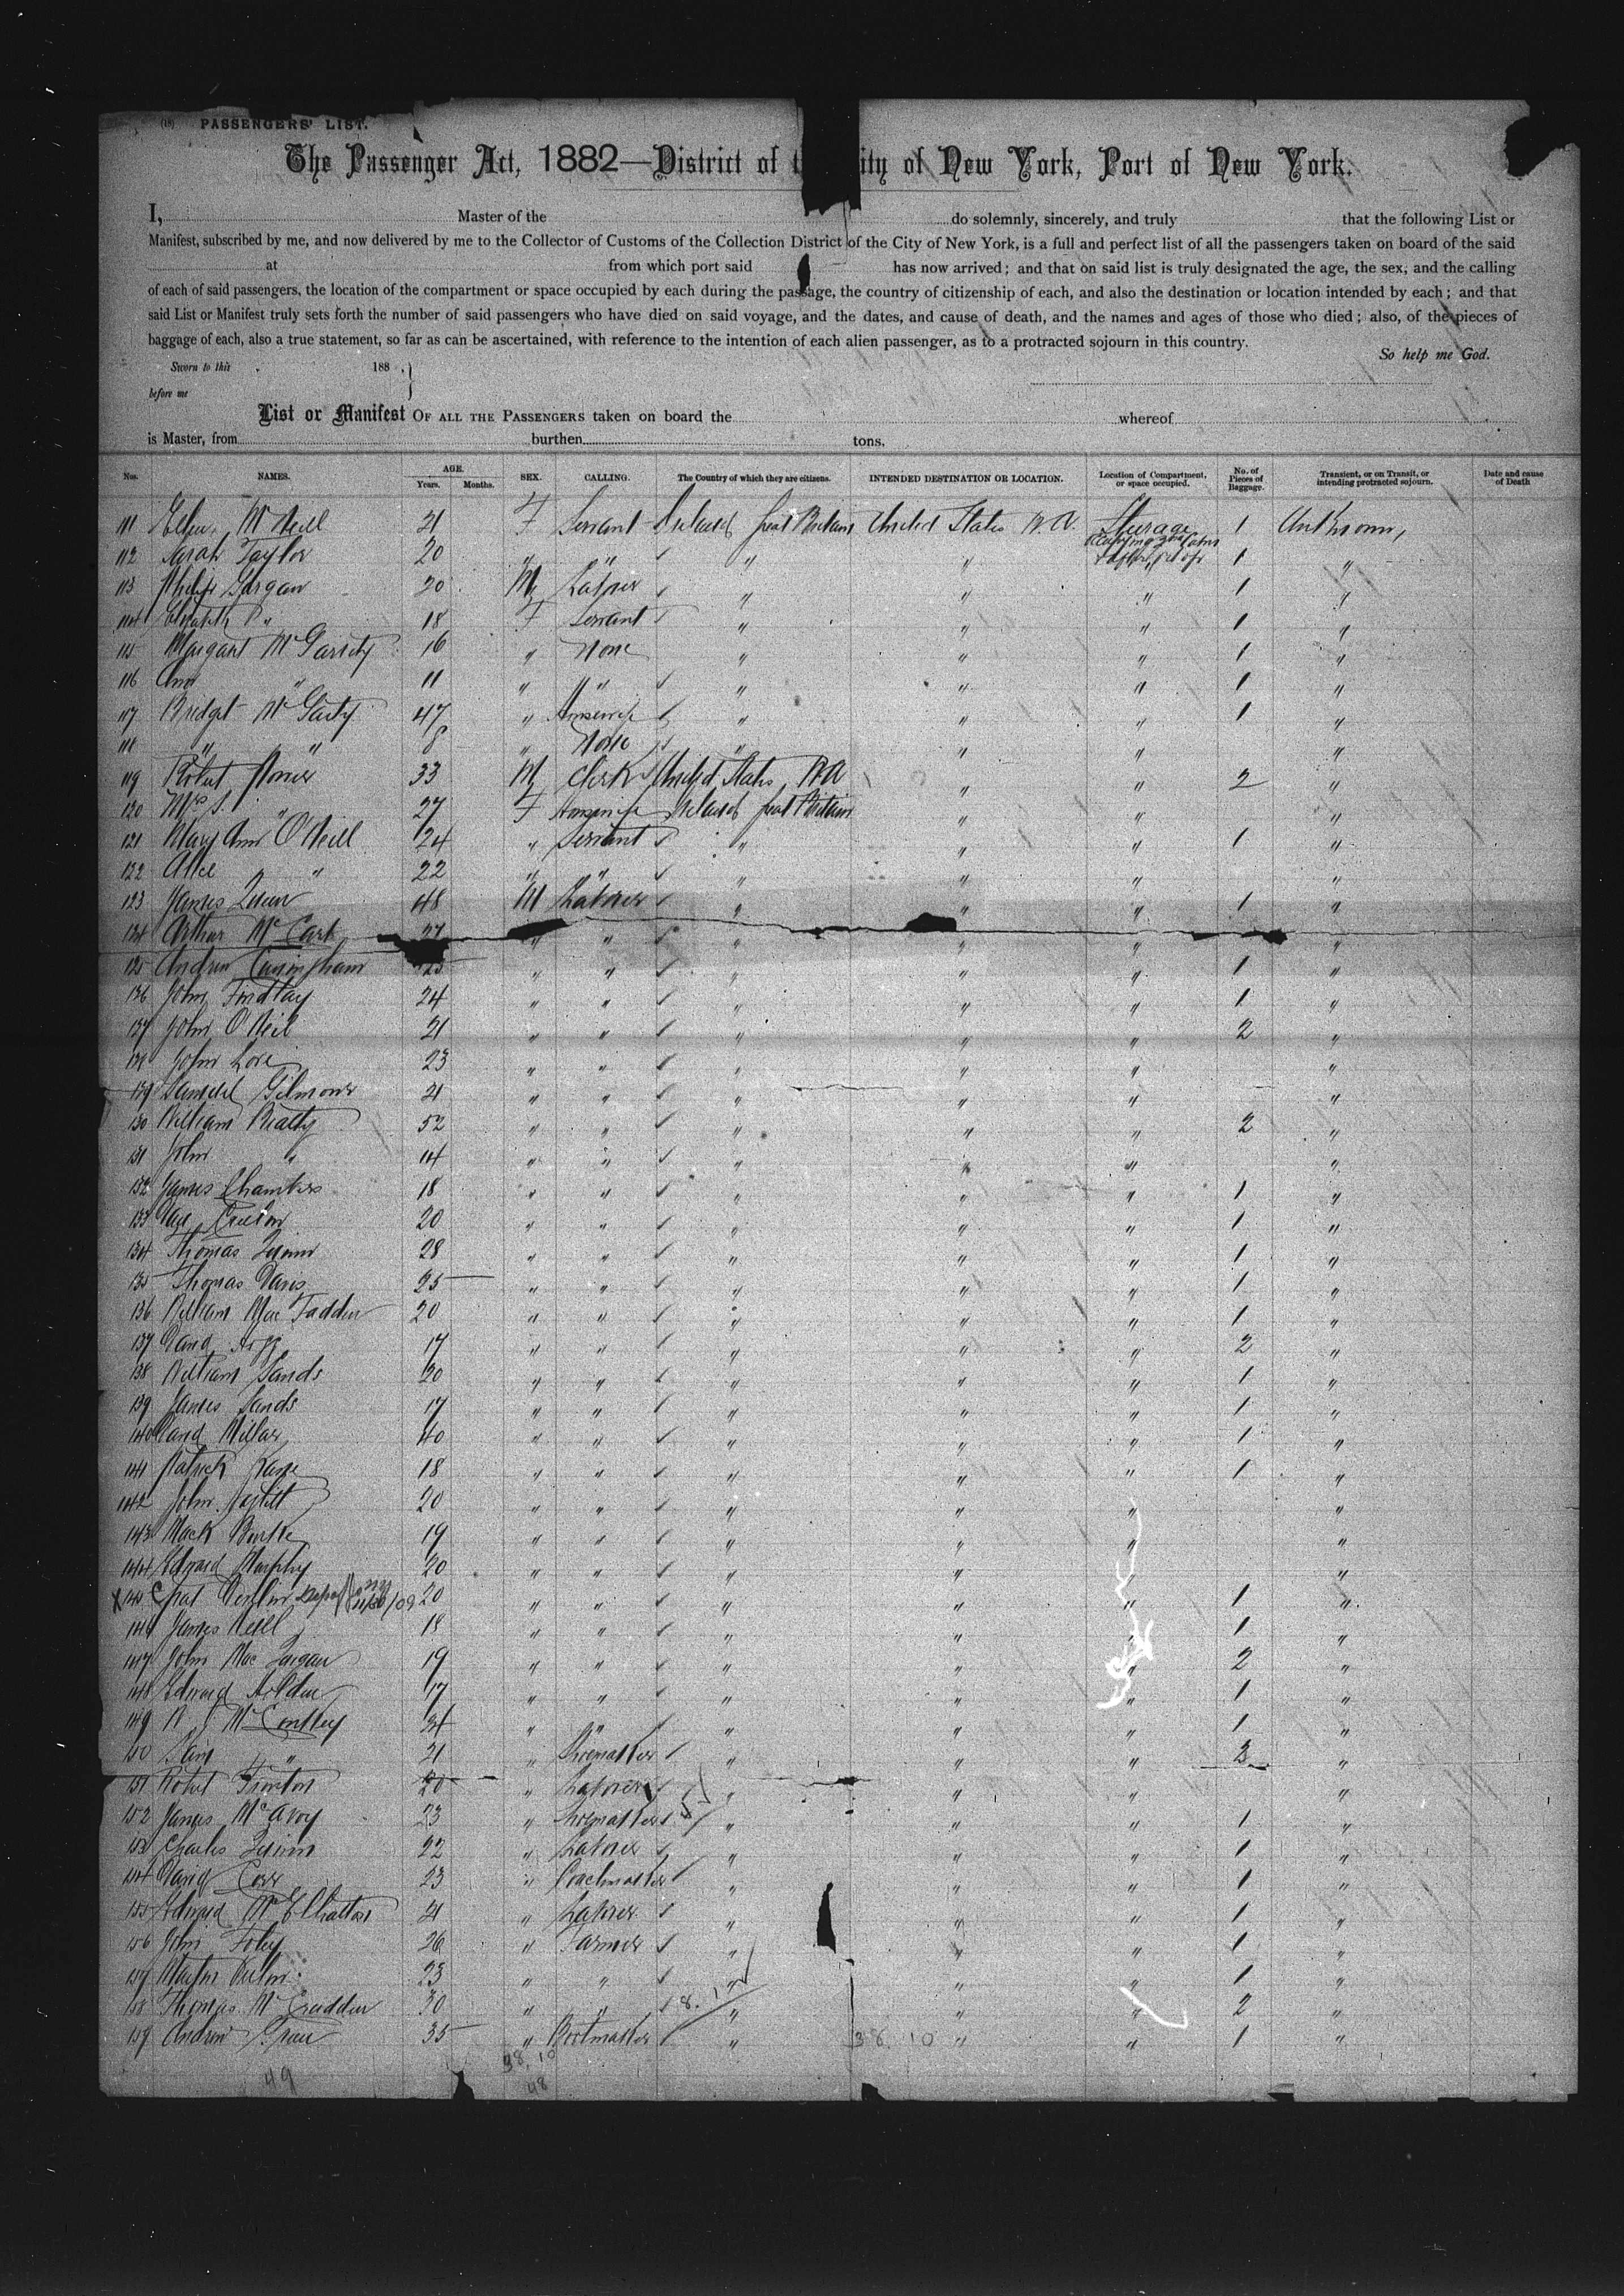 (18) PASSENGERS' LIST.
The Passenger Act, 1882—District of t ity of New York, Port of New York.
I, Master of the do solemnly, sincerely, and truly that the following List or
Manifest, subscribed by me, and now delivered by me to the Collector of Customs of the Collection District of the City of New York, is a full and perfect list of all the passengers taken on board of the said
at from which port said has now arrived; and that on said list is truly designated the age, the sex, and the calling
of each of said passengers, the location of the compartment or space occupied by each during the passage, the country of citizenship of each, and also the destination or location intended by each; and that
said List or Manifest truly sets forth the number of said passengers who have died on said voyage, and the dates, and cause of death, and the names and ages of those who died; also, of the pieces of
baggage of each, also a true statement, so far as can be ascertained, with reference to the intention of each alien passenger, as to a protracted sojourn in this country.
So help me God.
Sworn to this 188 .
before me
List or Manifest OF ALL THE PASSENGERS taken on board the whereof
is Master, from burthen tons,
Nos. NAMES. AGE. Years. Months. SEX. CALLING. The Country of which they are citizens. INTENDED DESTINATION OR LOCATION. Location of Compartment, or space occupied. No. of Pieces of Baggage. Transient, or on Transit, or intending protracted sojourn. Date and cause of Death
111 Ellen McNeill 21 F Servant Ireland Great Britain United States N.A. Steerage 1 Unknown,
112 Sarah Taylor 20 " " " " 1 "
113 Philip Gargan 20 M Laborer " " " 1 "
114 Elizabeth " 18 F Servant " " " 1 "
115 Margaret McGarrity 16 " None " " " 1 "
116 Ann " 11 " " " " " 1 "
117 Bridget McGarty 47 " Housewife " " " 1 "
118 " " 8 " None " " " "
119 Robert 33 M Clerk United States N.A " " 2 "
120 Mrs S. " 27 F Housewife Ireland Great Britain " " "
121 Mary Ann O'Neill 24 " Servant " " " 1 "
122 Alice " 22 " " " " " "
123 James Quinn 48 M Laborer " " " 1 "
124 Arthur McCart 27 " " " " " "
125 Andrew Cuningham 25 " " " " " 1 "
126 John Findlay 24 " " " " " 1 "
127 John O'Neil 21 " " " " " 2 "
128 John Love 23 " " " " " "
129 Samuel Gilmour 21 " " " " " "
130 William Beatty 52 " " " " " 2 "
131 John " 14 " " " " " "
132 James Chambers 18 " " " " " 1 "
133 20 " " " " " 1 "
134 Thomas Quinn 28 " " " " " 1 "
135 Thomas Davis 25 " " " " " 1 "
136 William MacFadden 20 " " " " " 1 "
137 David Hogg 17 " " " " " 2 "
138 William Sands 20 " " " " " 1 "
139 James Sands 17 " " " " " 1 "
140 David Millar 40 " " " " " 1 "
141 Patrick Kane 18 " " " " " 1 "
142 John 20 " " " " " "
143 Mack Burke 19 " " " " " "
144 Edward Murphy 20 " " " " " "
X 145 Pat Devlin 20 " " " " " 1 "
146 James Neill 18 " " " " " 1 "
147 John Mac 19 " " " " " 2 "
148 Edward Holden 17 " " " " " 1 "
149 McConkey 24 " " " " " 1 "
150 Sam " 21 " Shoemaker " " " 3 "
151 Robert 20 " Laborer " " " "
152 James McAvoy 23 " Shoemaker " " " 1 "
153 Charles Quinn 22 " Laborer " " " 1 "
154 David Corr 23 " Coachmaker " " " 1 "
155 Edward McElhatton 21 " Laborer " " " 1 "
156 John Foley 26 " Farmer " " " 1 "
157 Martin 23 " " " " " 1 "
158 Thomas McCrudden 30 " " " " " 2 "
159 Andrew 35 " Bootmaker " " " 1 "
38. 10
38. 10
49
48